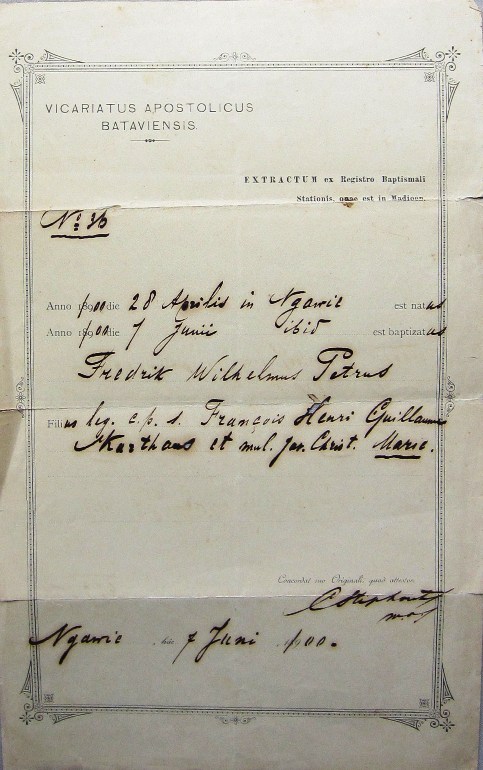 VICARIATUS APOSTOLICUS
BATAVIENSIS.
EXTRACTUM ex Registro Baptismali
Stationis, quae est in Madioen.
Nº 36
Anno 1900 die 28 Aprilis in Ngawie est natus
Anno 1900 die 7 Junii ibid est baptizatus
Fredrik Wilhelmus Petrus
Filius leg. c.p.s. François Henri Guillaume
et mul. Jav. Christ. Marie.
Concordat cum Originali, quod attestor
Ngawie die 7 Juni 1900.